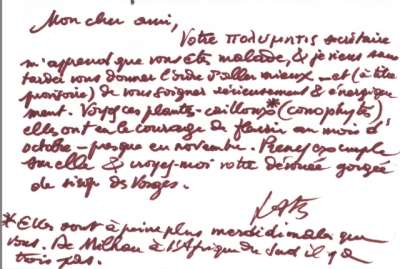 Mon cher ami,
Votre πολυμητις secrétaire
m'apprend que vous êtes malade, & je viens sans
tarder vous donner l'ordre d'aller mieux – et (à titre
provisoire) de vous soigner sérieusement & énergique
ment. Voyez ces plantes-cailloux* (conophytes)
elles ont eu le courage de fleurir au mois d'
octobre – presque en novembre. Prenez exemple
sur elles & croyez-moi votre dévouée gorgée
de sirop des Vosges.
* Elles sont à peine plus méridionales que
vous. De Milhau à l'Afrique du Sud il y a
trois pas.